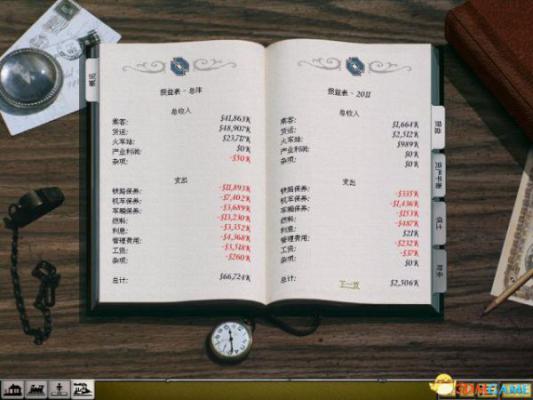 概览
损益表 - 总体
总收入
乘客: $41,863K
货运: $48,907K
火车站: $23,717K
产业利润: $0K
杂项: -$50K
支出
铁路保养: -$11,893K
机车保养: -$7,402K
车厢保养: -$3,689K
燃料: -$13,230K
利息: -$3,352K
管理费用: -$4,368K
工资: -$3,518K
杂项: -$260K
总计: $66,724K
损益表 - 2011
总收入
乘客: $1,664K
货运: $2,512K
火车站: $989K
产业利润: $0K
杂项: $0K
支出
铁路保养: -$335K
机车保养: -$1,436K
车厢保养: -$153K
燃料: -$487K
利息: $21K
管理费用: -$232K
工资: -$37K
杂项: $0K
总计: $2,506K
下一页
损益
3DMGAME